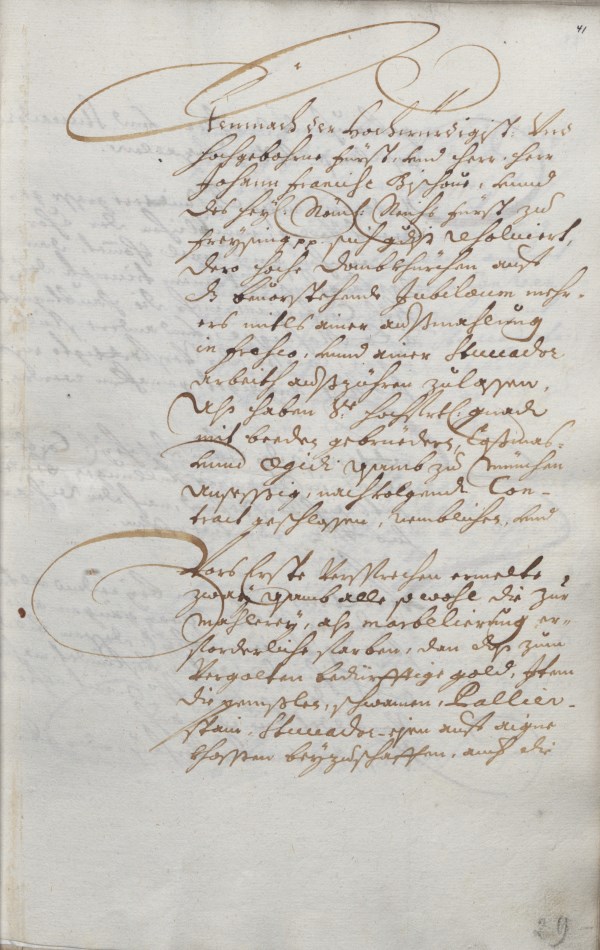 41
Demnach der Hochwürdigist: Und
hochgebohrne Fürst und Herr, Herr
Johann Francisc Bischove, unnd
des Heyl: Röm: Reichs Fürst zu
Freysing pp. sich gdist resolviert,
dero hoche Dombkhürchen auf
dz bevorstehende Jubilæum mehr-
ers mitls ainer außmahlung
in fresco, unnd ainer Stuccador
arbeith außzühren zulassen,
Alß haben Sr. hochfrtl: gnad
mit beeden gebrüedern, Coßmas-
unnd Egidi Asamb zu München
ansessßig, nachvolgendt Con-
tract geschlossen, nemblichen, und
Vors Erste versprechen ermelte
zway Asamb alle sowohl die zur
Mahlerey, alß marblierung er-
forderliche farben, dan dz zum
Vergolten bedürfftige gold, Item
die pemßlen, schwamen, Pallier-
stain, Stuccador-eysen auf aigne
khossten beyzuschaffen, auch die
29